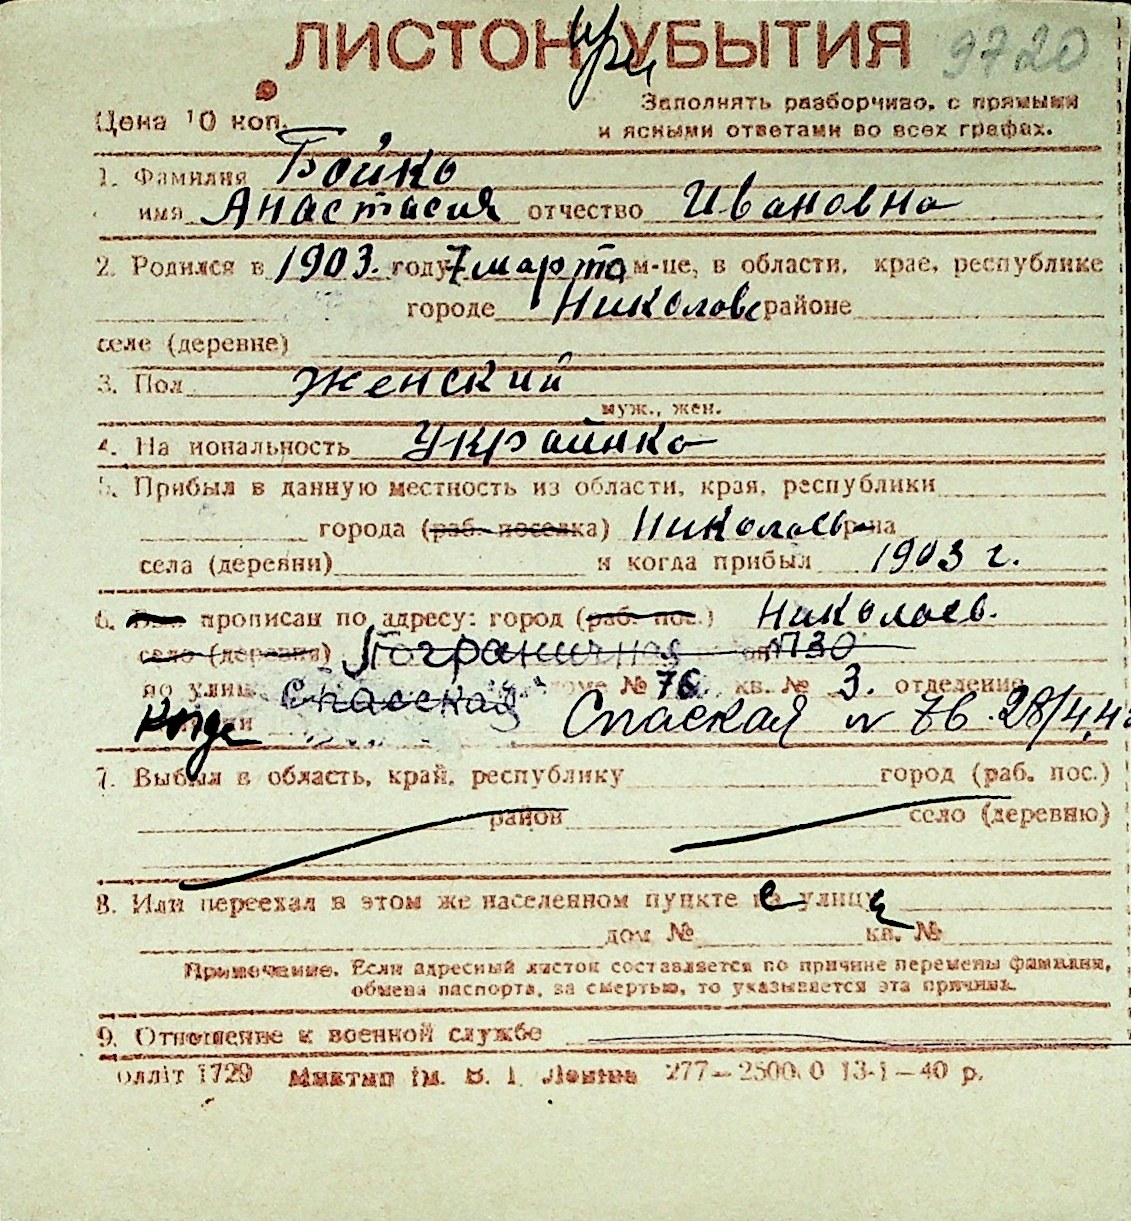 ЛИСТОК при УБЫТИЯ 9720
Цена 10 коп.
Заполнять разборчиво, с прямыми
и ясными ответами во всех графах.
1. Фамилия Бойко
имя Анастасия отчество Ивановна
2. Родился в 1903. году 7 марта м-це, в области, крае, республике
городе Николаев районе
селе (деревне)
3. Пол женский
муж., жен.
4. На иональность Украинка
5. Прибыл в данную местность из области, края, республики
города (раб. поселка) Николаев р-на
села (деревни) и когда прибыл 1903 г.
6. прописан по адресу: город (раб. пос.) Николаев.
село (деревня) Пограничная 130
по улице Спасская доме № 76 кв. № 3. отделение
Спаская № 76. 28/4.4
7. Выбыл в область, край, республику город (раб. пос.)
район село (деревню)
8. Или переехал в этом же населенном пункте с улицы
дом № кв. №
Примечание. Если адресный листок составляется по причине перемены фамилии,
обмена паспорта, за смертью, то указывается эта причина.
9. Отношение к военной службе
олліт 1729 Миктип ім. В. І. Леніна 277—2500 0 13-1—40 р.